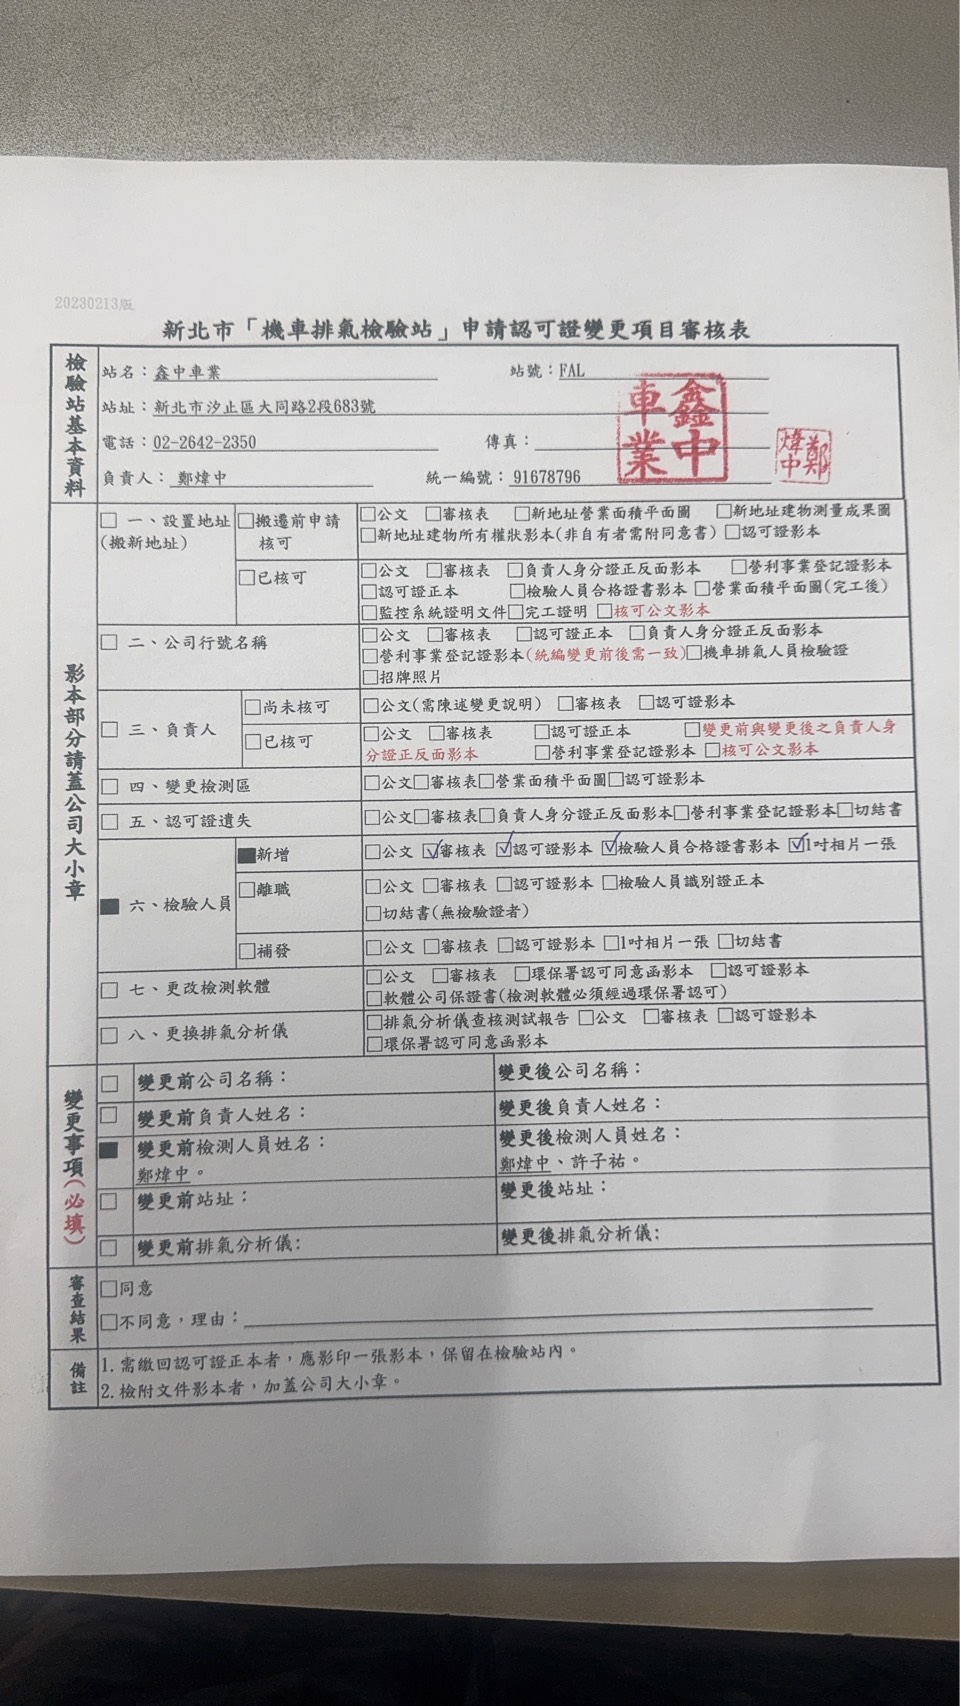 20230213版
新北市「機車排氣檢驗站」申請認可證變更項目審核表
檢驗站基本資料
站名：鑫中車業 站號：FAL
站址：新北市汐止區大同路2段683號
電話：02-2642-2350 傳真：
負責人：鄭煒中 統一編號：91678796
鑫中車業
鄭煒中
影本部分請蓋公司大小章
□ 一、設置地址(搬新地址)
□搬遷前申請核可
□公文 □審核表 □新地址營業面積平面圖 □新地址建物測量成果圖
□新地址建物所有權狀影本(非自有者需附同意書) □認可證影本
□已核可
□公文 □審核表 □負責人身分證正反面影本 □營利事業登記證影本
□認可證正本 □檢驗人員合格證書影本 □營業面積平面圖(完工後)
□監控系統證明文件□完工證明 □核可公文影本
□ 二、公司行號名稱
□公文 □審核表 □認可證正本 □負責人身分證正反面影本
□營利事業登記證影本(統編變更前後需一致)□機車排氣人員檢驗證
□招牌照片
□ 三、負責人
□尚未核可
□公文(需陳述變更說明) □審核表 □認可證影本
□已核可
□公文 □審核表 □認可證正本 □變更前與變更後之負責人身
分證正反面影本 □營利事業登記證影本 □核可公文影本
□ 四、變更檢測區
□公文□審核表□營業面積平面圖□認可證影本
□ 五、認可證遺失
□公文□審核表□負責人身分證正反面影本□營利事業登記證影本□切結書
■ 六、檢驗人員
■新增
□公文 ☑審核表 ☑認可證影本 ☑檢驗人員合格證書影本 ☑1吋相片一張
□離職
□公文 □審核表 □認可證影本 □檢驗人員識別證正本
□切結書(無檢驗證者)
□補發
□公文 □審核表 □認可證影本 □1吋相片一張 □切結書
□ 七、更改檢測軟體
□公文 □審核表 □環保署認可同意函影本 □認可證影本
□軟體公司保證書(檢測軟體必須經過環保署認可)
□ 八、更換排氣分析儀
□排氣分析儀查核測試報告 □公文 □審核表 □認可證影本
□環保署認可同意函影本
變更事項(必填)
□ 變更前公司名稱： 變更後公司名稱：
□ 變更前負責人姓名： 變更後負責人姓名：
■ 變更前檢測人員姓名： 變更後檢測人員姓名：
鄭煒中。 鄭煒中、許子祐。
□ 變更前站址： 變更後站址：
□ 變更前排氣分析儀: 變更後排氣分析儀:
審查結果
□同意
□不同意，理由：
備註
1.需繳回認可證正本者，應影印一張影本，保留在檢驗站內。
2.檢附文件影本者，加蓋公司大小章。